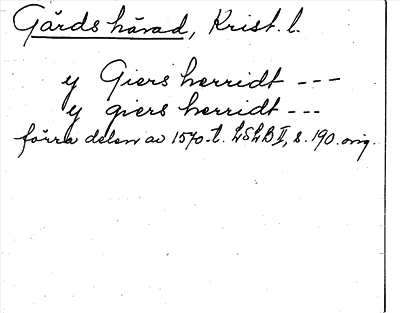 Gärds härad, Krist. l.
y Giers herridt ---
y giers herridt ---
förra delen av 1570-t. LSLB II, s. 190. orig.